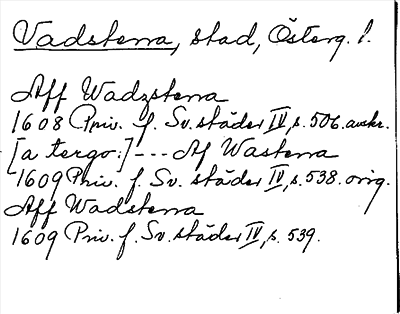 Vadstena, stad, Österg. l.
Aff Wadzstena
1608 Priv. f. Sv. städer IV, s. 506. avskr.
[a tergo:] --- Af Wastena
1609 Priv. f. Sv. städer IV, s. 538. orig.
Aff Wadstena
1609 Priv. f. Sv. städer IV, s. 539.